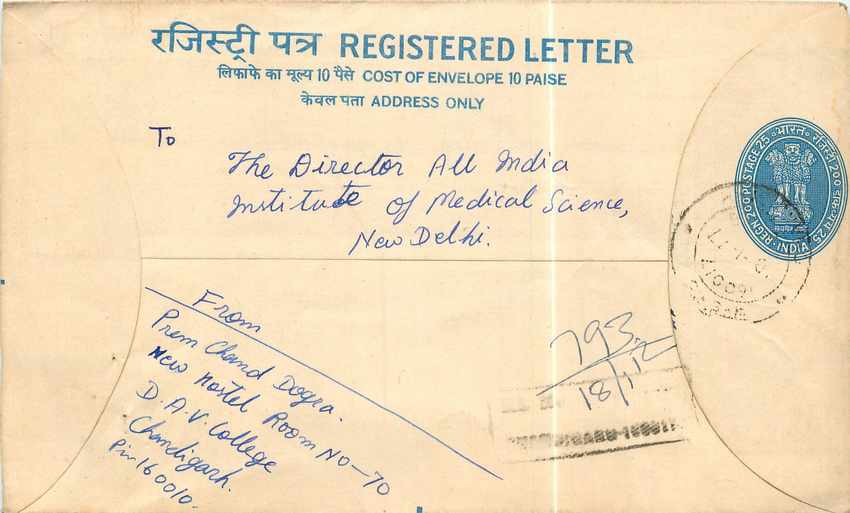 रजिस्ट्री पत्र REGISTERED LETTER
लिफाफे का मूल्य 10 पैसे COST OF ENVELOPE 10 PAISE
केवल पता ADDRESS ONLY
To
The Director All India
Institute of Medical Science,
New Delhi.
भारत
REGN 200 POSTAGE 25
INDIA
From
Prem Chand Dogra.
New Hostel Room No-70
D.A.V. College
Chandigarh.
Pin-160010.
793
18/1/2